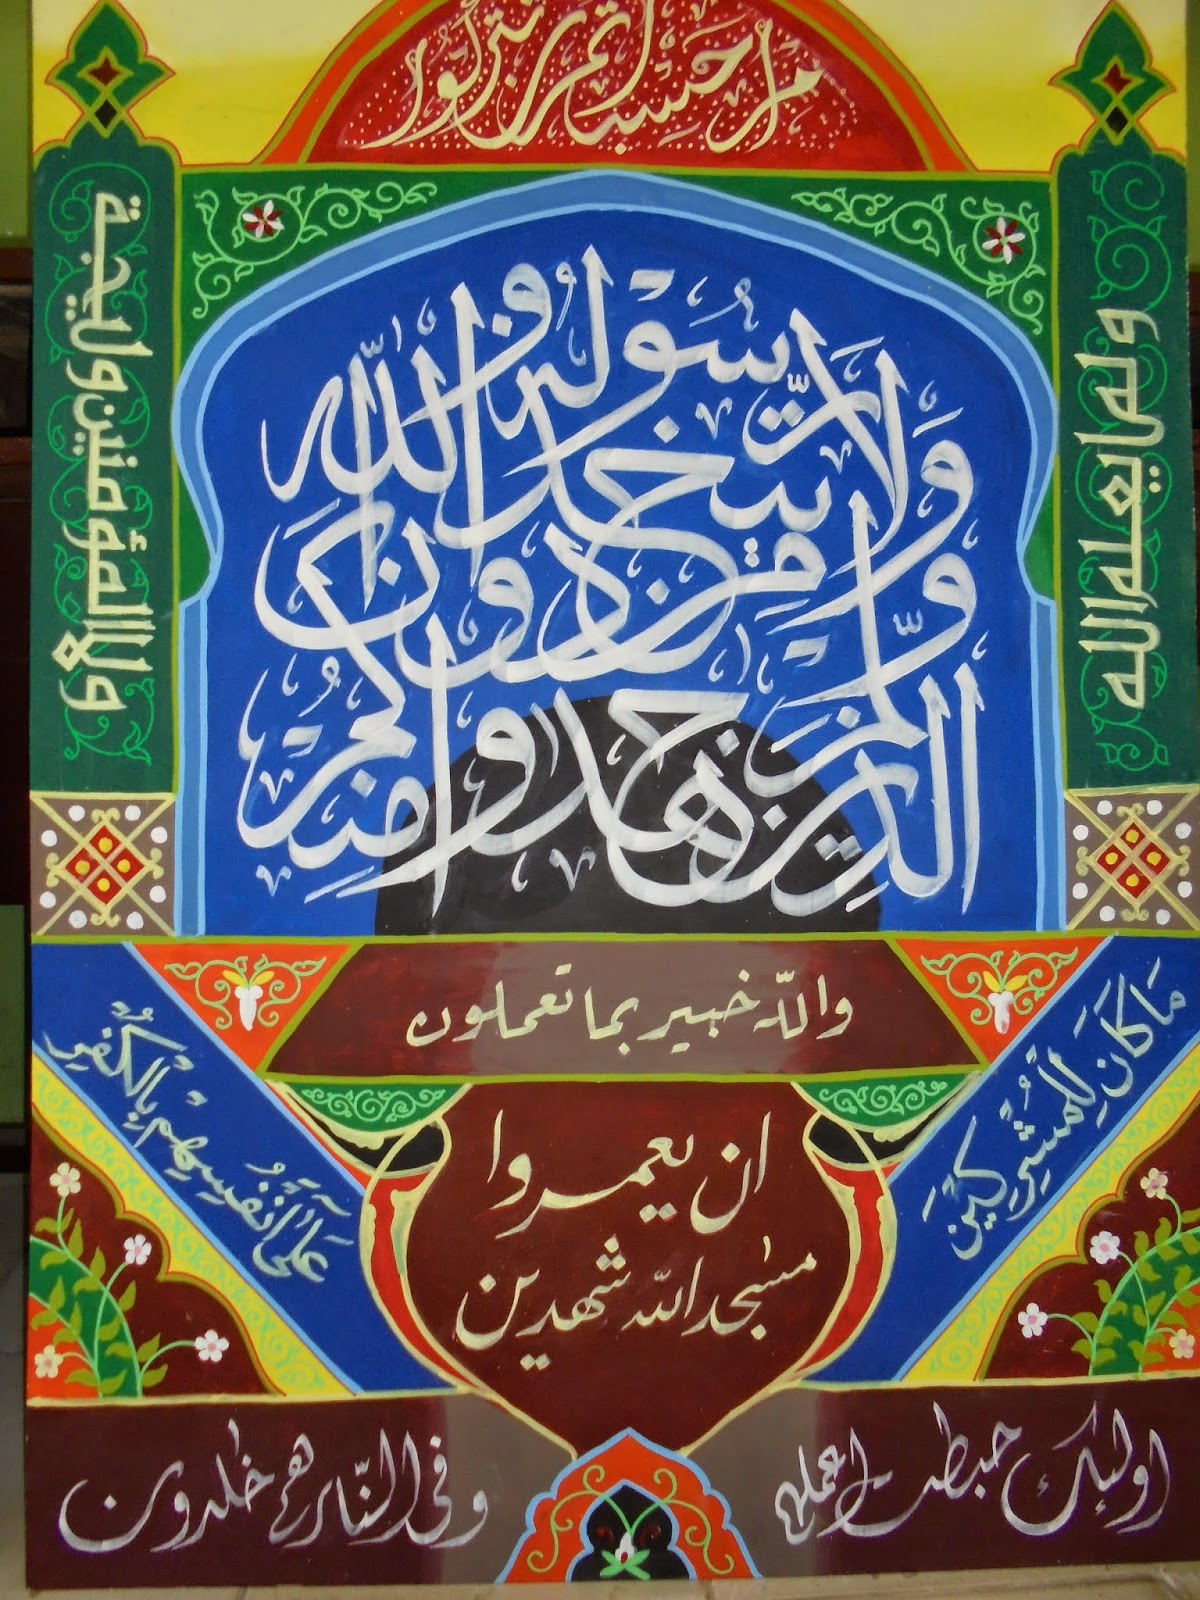 أم حسبتم أن تتركوا
ولما يعلم الله
الذين جهدوا منكم ولم يتخذوا من دون الله ولا رسوله
ولا المؤمنين وليجة
والله خبير بما تعملون
مَا كَانَ لِلْمُشْرِكِينَ
ان يعمروا
مسٰجد الله شٰهدين
عَلَىٰ أَنْفُسِهِمْ بِالْكُفْرِ
اولئك حبطت اعملهم
وفى النّار هم خٰلدون